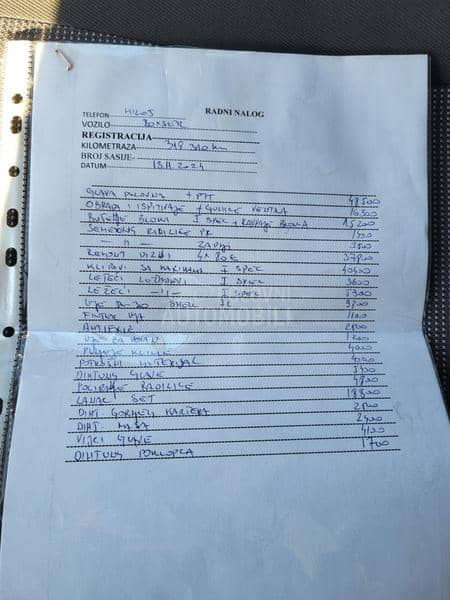 RADNI NALOG
TELEFON MILOŠ
VOZILO BOXSER
REGISTRACIJA
KILOMETRAZA 318 310 km
BROJ SASIJE
DATUM 13.11.2024
GLAVA POLOVNA + PTT 48500
OBRADA I ISPITIVANJE + GUMICE VENTILA 16500
BUŠENJE BLOKA I SPEC + RAVNANJE BLOKA 15200
SEMERING RADILICE PR. 1400
ZADNJI 3800
REMONT DIZNI 4 x 80 € 37800
KLIPOVI SA KARIKAMA I SPEC 40400
LETEĆI LEŽAJEVI I SPEC 5600
LEŽEĆI -||- I SPEC 7300
ULJE 5L 3700
FILTER ULJA 1100
ANTIFRIZ 2800
1200
4000
4000
DIHTUNG GLAVE 3400
POLIRANJE RADILICE 4800
LANAC SET 18800
DIHT. GORNJEG KARTERA 2800
DIHT. MASA 2400
VIJCI GLAVE 4100
DIHTUNG POKLOPCA 1700
AUTOMOBILI